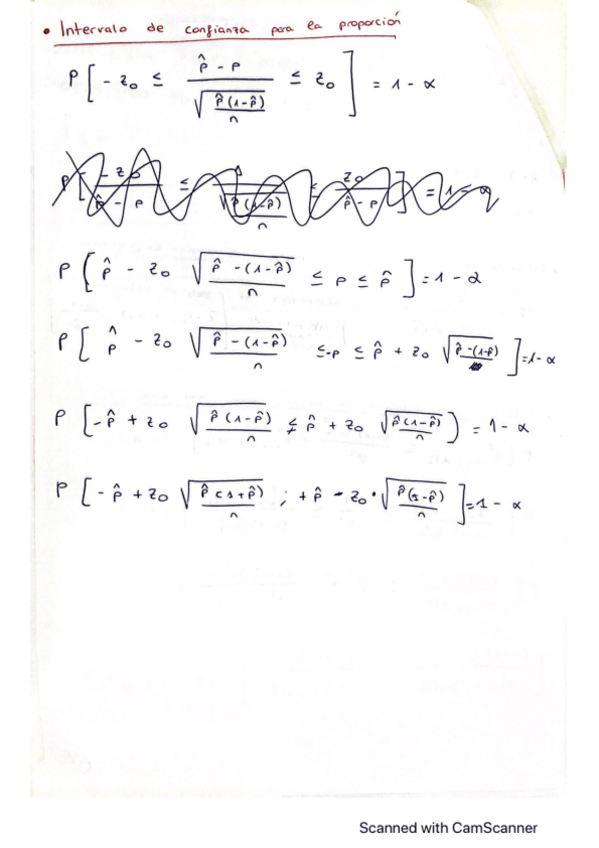 • Intervalo de confianza para la proporción
P [ - z₀ ≤ (p̂ - p) / √(p̂(1-p̂)/n) ≤ z₀ ] = 1 - α
P ( p̂ - z₀ √(p̂ - (1-p̂)/n) ≤ p ≤ p̂ ] = 1 - α
P [ p̂ - z₀ √(p̂ - (1-p̂)/n) ≤ -p ≤ p̂ + z₀ √(p̂ - (1-p̂)) ] = 1 - α
P [ - p̂ + z₀ √(p̂(1-p̂)/n) ≤ p̂ + z₀ √(p̂(1-p̂)/n) ) = 1 - α
P [ - p̂ + z₀ √(p̂(1+p̂)/n) ; + p̂ - z₀ · √(p̂(1-p̂)/n) ] = 1 - α
Scanned with CamScanner